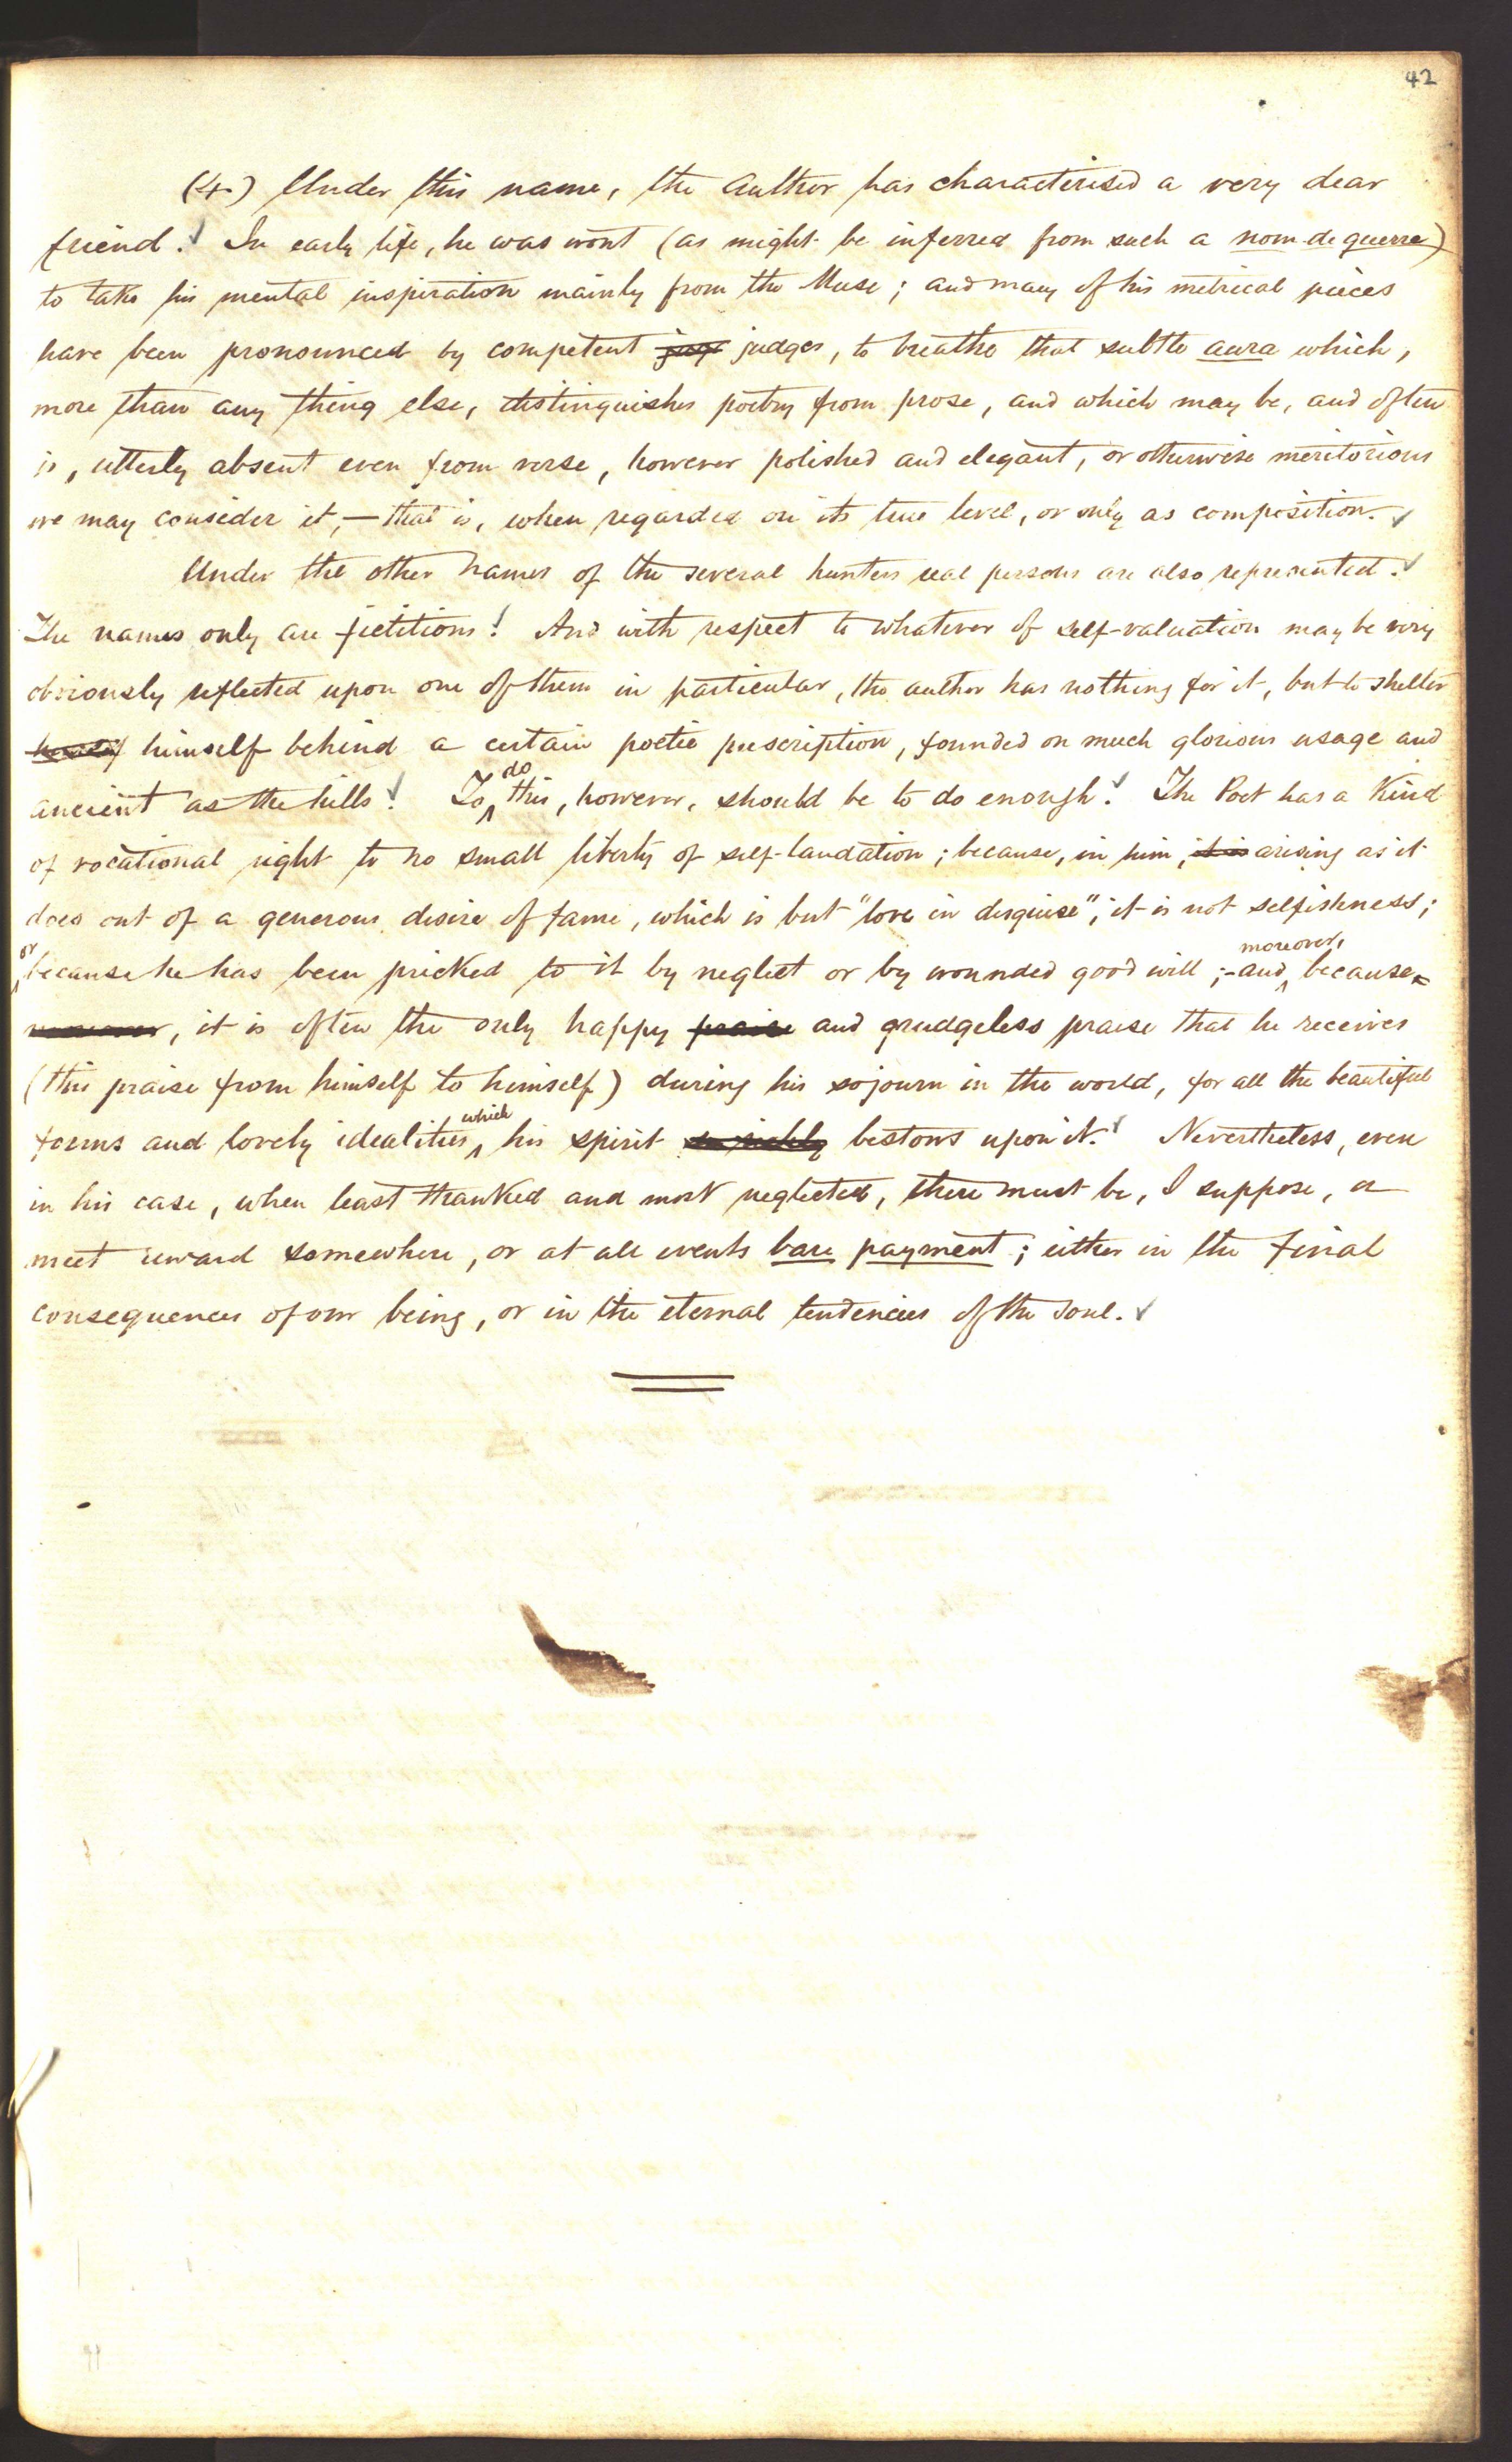 42
(4.) Under this name, the author has characterised a very dear
friend. In early life, he was wont (as might be inferred from such a nom-de-guerre)
to take his mental inspiration mainly from the Muse; and many of his metrical pieces
have been pronounced by competent judges, to breathe that subtle aura which,
more than any thing else, distinguishes poetry from prose, and which may be, and often
is, utterly absent even from verse, however polished and elegant, or otherwise meritorious
we may consider it,—that is, when regarded on its true level, or only as composition.
Under the other names of the several hunters real persons are also represented.
The names only are fictitious! And with respect to whatever of self-valuation may be very
obviously reflected upon one of them in particular, the author has nothing for it, but to shelter
himself behind a certain poetic prescription, founded on much glorious usage and
ancient as the hills! To do this, however, should be to do enough. The Poet has a kind
of vocational right to no small liberty of self-laudation; because, in him, it is arising as it
does out of a generous desire of fame, which is but "love in disguise", it is not selfishness;
or because he has been pricked to it by neglect or by wounded good will;—and moreover, because
moreover, it is often the only happy praise and grudgeless praise that he receives
(this praise from himself to himself) during his sojourn in the world, for all the beautiful
forms and lovely idealities which his spirit so richly bestows upon it. Nevertheless, even
in his case, when least thanked and most neglected, there must be, I suppose, a
meet reward somewhere, or at all events bare payment; either in the final
consequences of our being, or in the eternal tendencies of the soul.